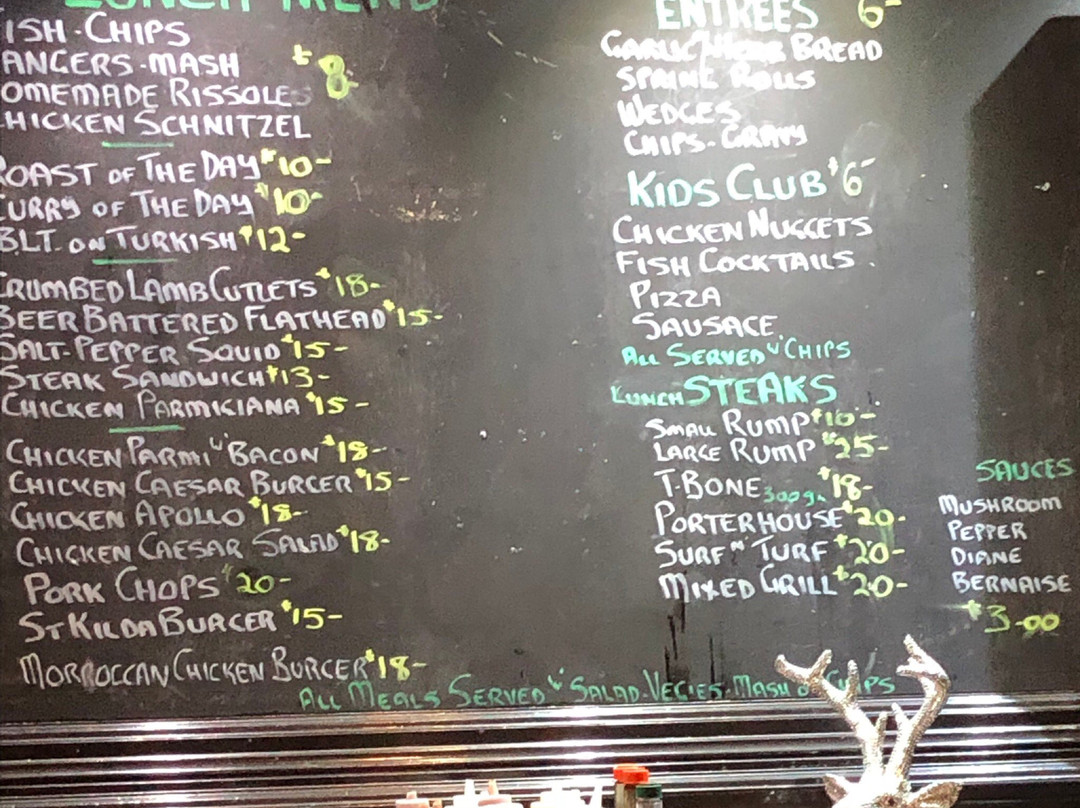 LUNCH MENU
ISH-CHIPS
ANGERS-MASH $8-
OMEMADE RISSOLES
HICKEN SCHNITZEL
ROAST OF THE DAY $10-
CURRY OF THE DAY $10-
BLT. ON TURKISH $12-
CRUMBED LAMB CUTLETS $18-
BEER BATTERED FLATHEAD $15-
SALT-PEPPER SQUID $15-
STEAK SANDWICH $13-
CHICKEN PARMIGIANA $15-
CHICKEN PARMI "W" BACON $18-
CHICKEN CAESAR BURGER $15-
CHICKEN APOLLO $18-
CHICKEN CAESAR SALAD $18-
PORK CHOPS $20-
ST KILDA BURGER $15-
MORROCCAN CHICKEN BURGER $18-
ALL MEALS SERVED "W" SALAD-VEGIES-MASH o CHIPS
ENTREES 6-
GARLIC BREAD
SPRING ROLLS
WEDGES
CHIPS-GRAVY
KIDS CLUB $6-
CHICKEN NUGGETS
FISH COCKTAILS
PIZZA
SAUSAGE
ALL SERVED "W" CHIPS
LUNCH STEAKS
SMALL RUMP $10-
LARGE RUMP $25-
T-BONE 300g $18-
PORTERHOUSE $20-
SURF "N" TURF $20-
MIXED GRILL $20-
SAUCES
MUSHROOM
PEPPER
DIANE
BERNAISE
$3-00